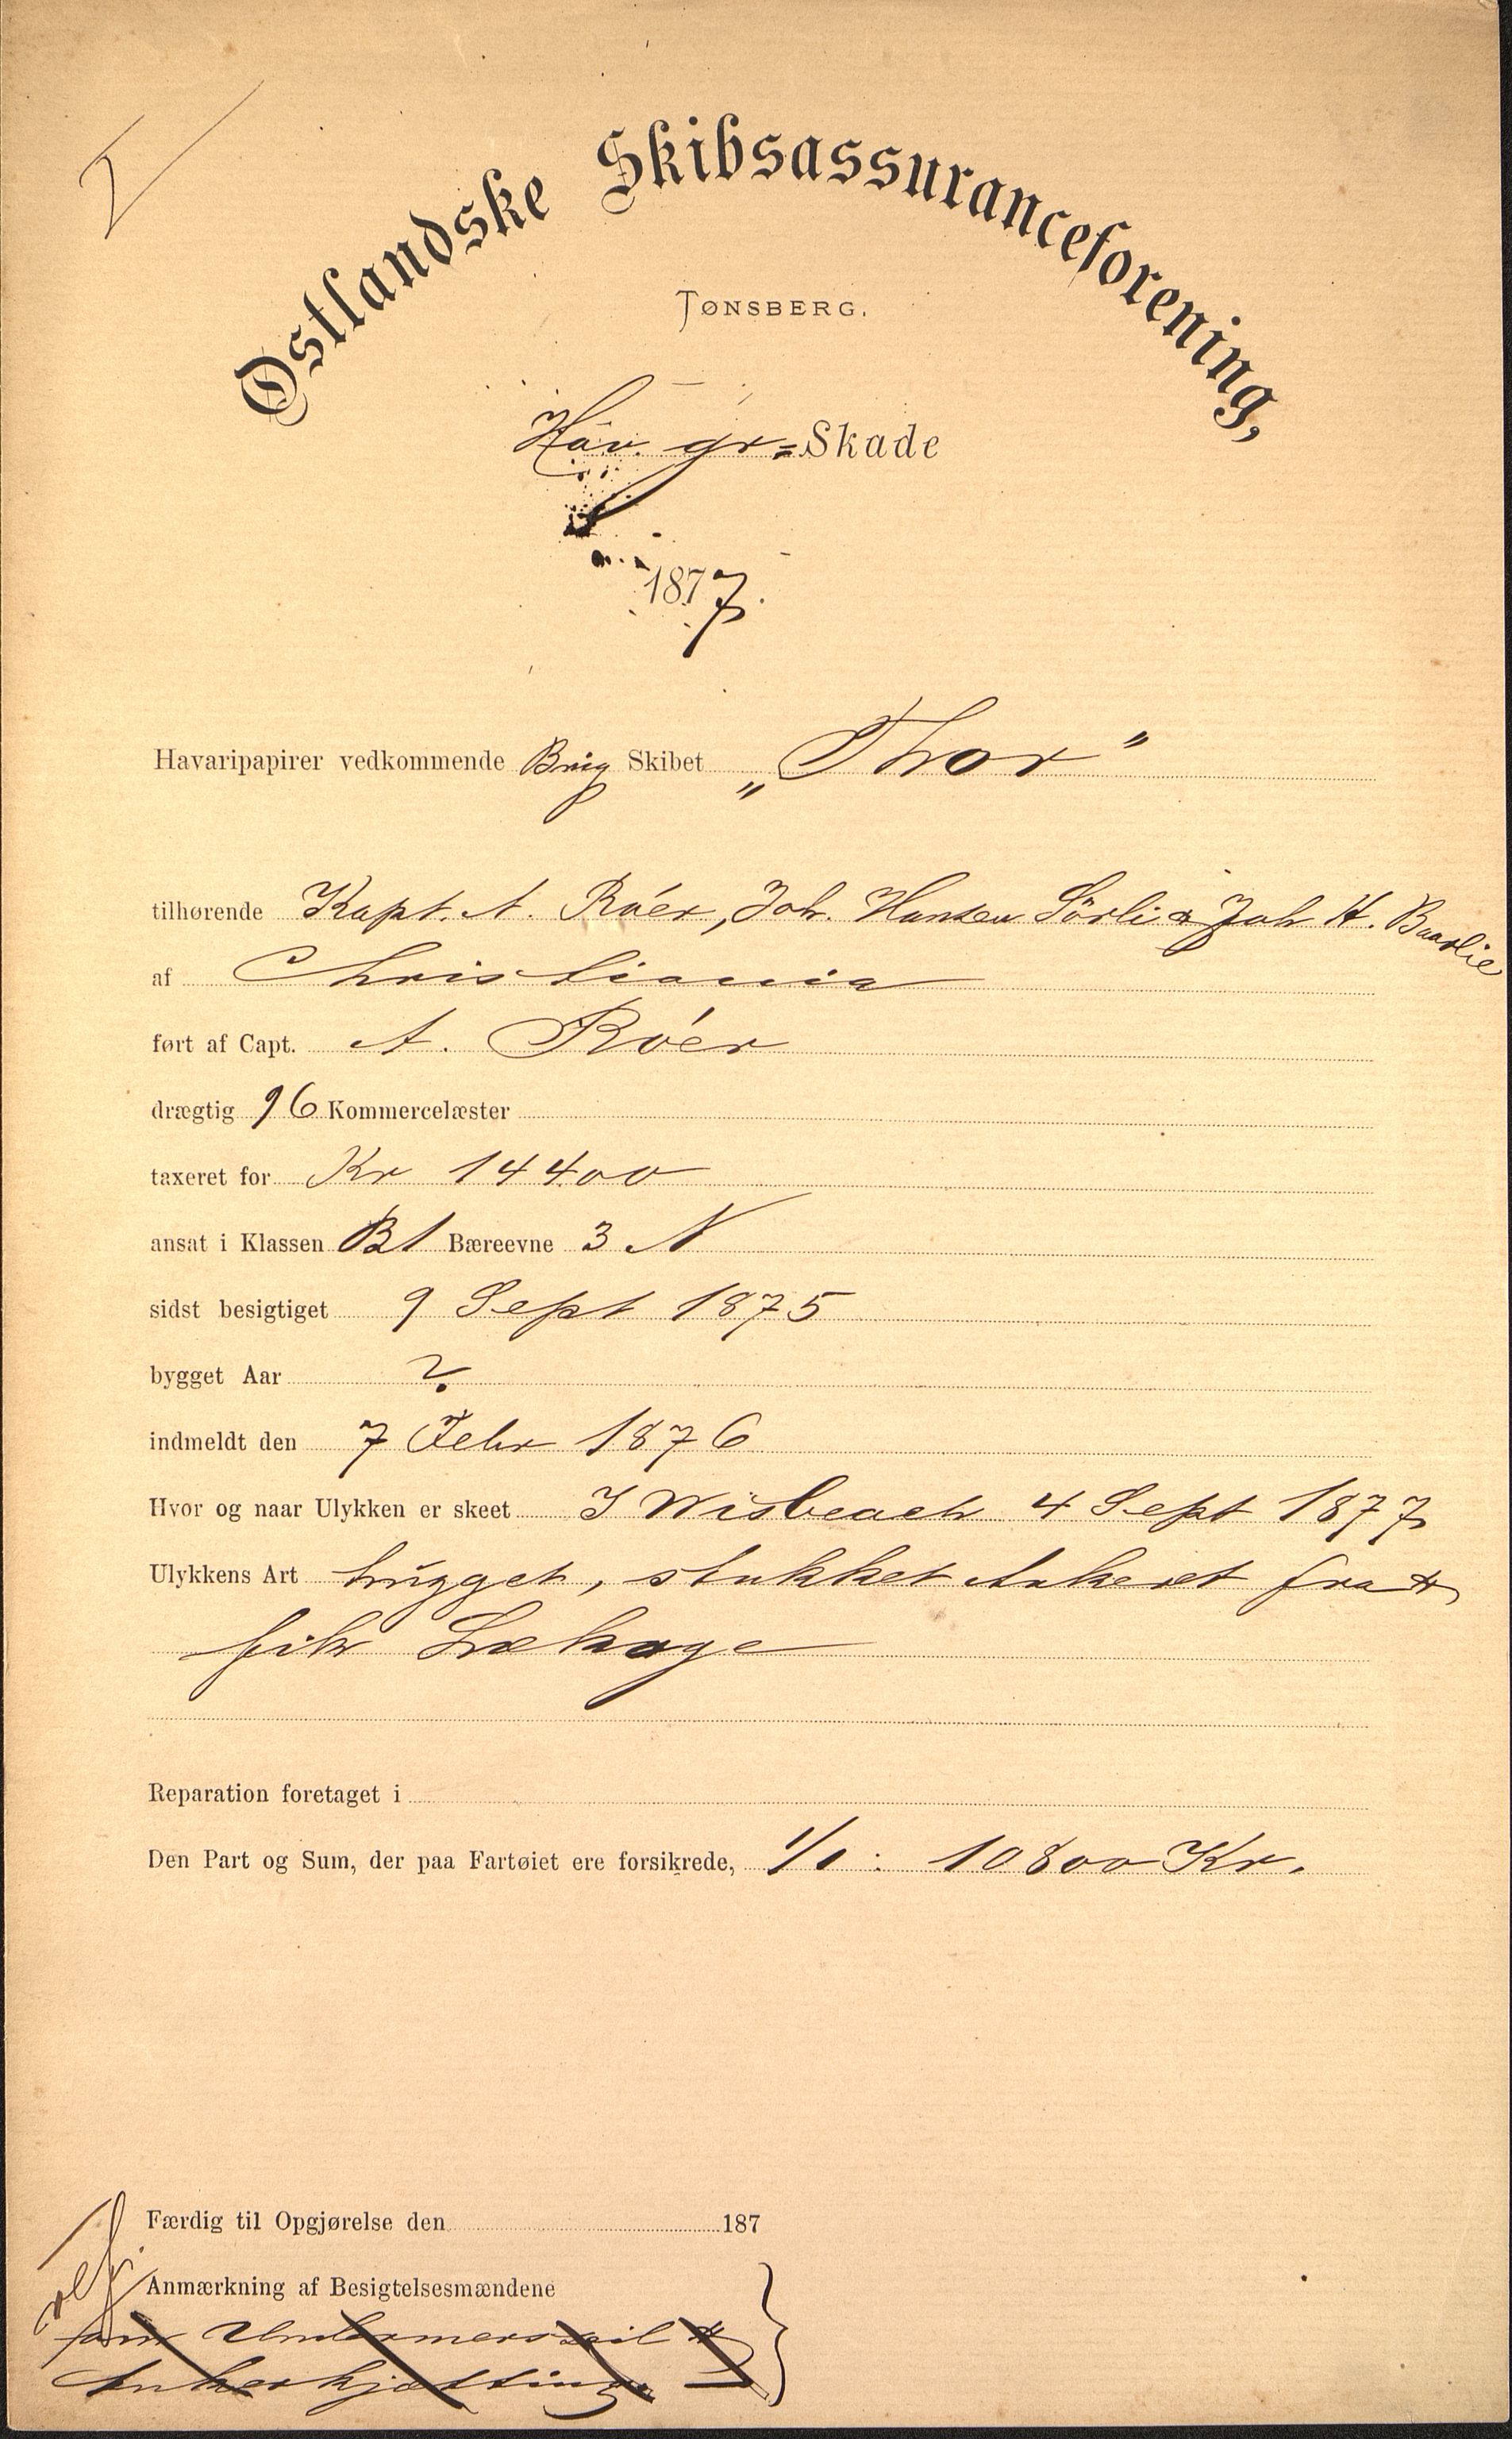 Østlandske Skibsassuranceforening,
TØNSBERG.
Hav. gr=Skade
1877.
Havaripapirer vedkommende Brig Skibet „Thor"
tilhørende Kapt. A. Róer, Joh. Hansen Sörli & Joh H. Baarlie
af Christiania
ført af Capt. A. Róer
drægtig 96 Kommercelæster
taxeret for Kr 14400
ansat i Klassen B1 Bæreevne 3 N
sidst besigtiget 9 Sept 1875
bygget Aar ?
indmeldt den 7 Febr 1876
Hvor og naar Ulykken er skeet I Wisbeach 4 Sept 1877
Ulykkens Art hugget, stukket Ankeret fra &
fik Lækage
Reparation foretaget i
Den Part og Sum, der paa Fartøiet ere forsikrede, 1/1 : 10800 Kr.
Færdig til Opgjørelse den 187
Anmærkning af Besigtelsesmændene
Undermersseil &
Ankerkjætting